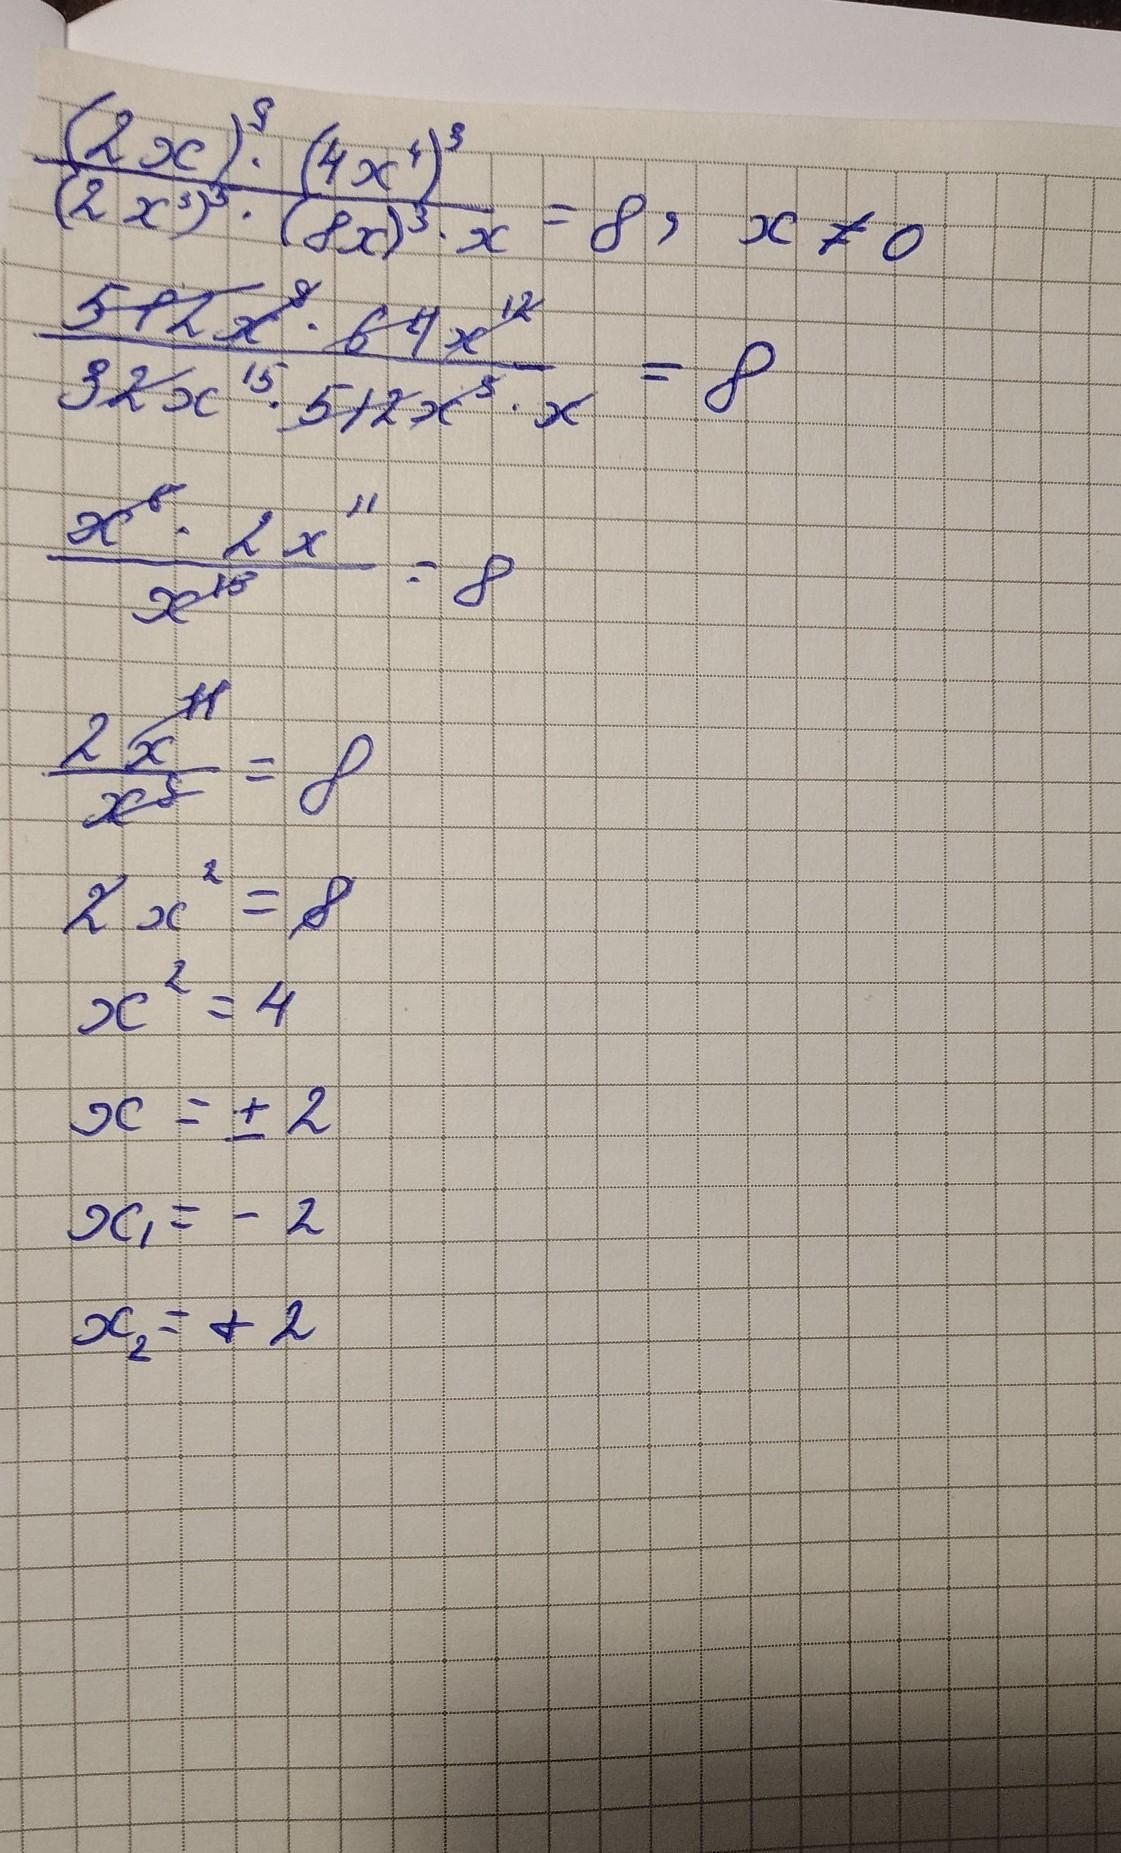 (2x)⁹ · (4x⁴)³ / (2x³)⁵ · (8x)³ · x = 8, x ≠ 0
512x⁹ · 64x¹² / 32x¹⁵ · 512x³ · x = 8
x⁶ · 2x¹¹ / x¹⁵ = 8
2x¹¹ / x⁹ = 8
2x² = 8
x² = 4
x = ± 2
x₁ = - 2
x₂ = + 2